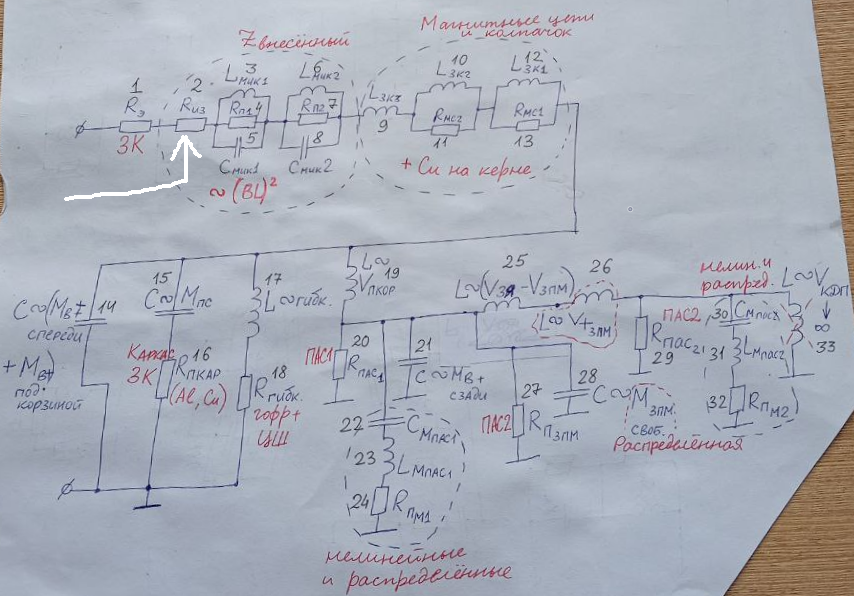 Магнитные цепи
и колпачок
Zвнесённый
1
Rэ
3К
2
Rиз
3
Lмик1
Rп1 4
5
Cмик1
~(BL)²
6
Lмик2
Rп2 7
8
Cмик2
Lзк3
9
10
Lзк2
Rмс2
11
12
Lзк1
Rмс1
13
+ Cu на керне
C~(Mв+
спереди
+ Mв+)
под
корзиной
14
15
C~Mпс
Каркас
3К
16
Rпкар
(Al, Cu)
17
L~гибк.
18
Rгибк.
гофр+
ЦШ
L~
Vпкор
19
ПАС1
20
Rпас1
21
C~Mв+
сзади
22
CMпас1
23
LMпас1
24
Rпм1
нелинейные
и распределённые
25
L~(Vзя-Vзпм)
26
L~V+зпм
ПАС2
27
Rпзпм
28
C~Mзпм.
своб.
Распределённая
ПАС2
Rпас2
29
нелин. и
распред.
30
CMпас2
31
LMпас2
32
Rпм2
L~Vкдп
↓
∞
33